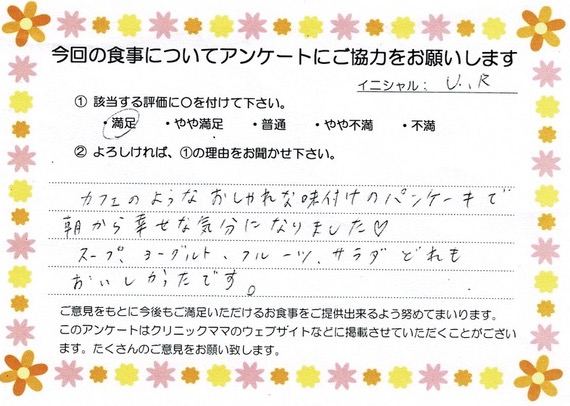 今回の食事についてアンケートにご協力をお願いします
イニシャル： U.K
① 該当する評価に○を付けて下さい。
・満足 ・やや満足 ・普通 ・やや不満 ・不満
② よろしければ、①の理由をお聞かせ下さい。
カフェのようなおしゃれな味付けのパンケーキで
朝から幸せな気分になりました♡
スープ、ヨーグルト、フルーツ、サラダどれも
おいしかったです。
ご意見をもとに今後もご満足いただけるお食事をご提供出来るよう努めてまいります。
このアンケートはクリニックママのウェブサイトなどに掲載させていただくことがござい
ます。たくさんのご意見をお願い致します。